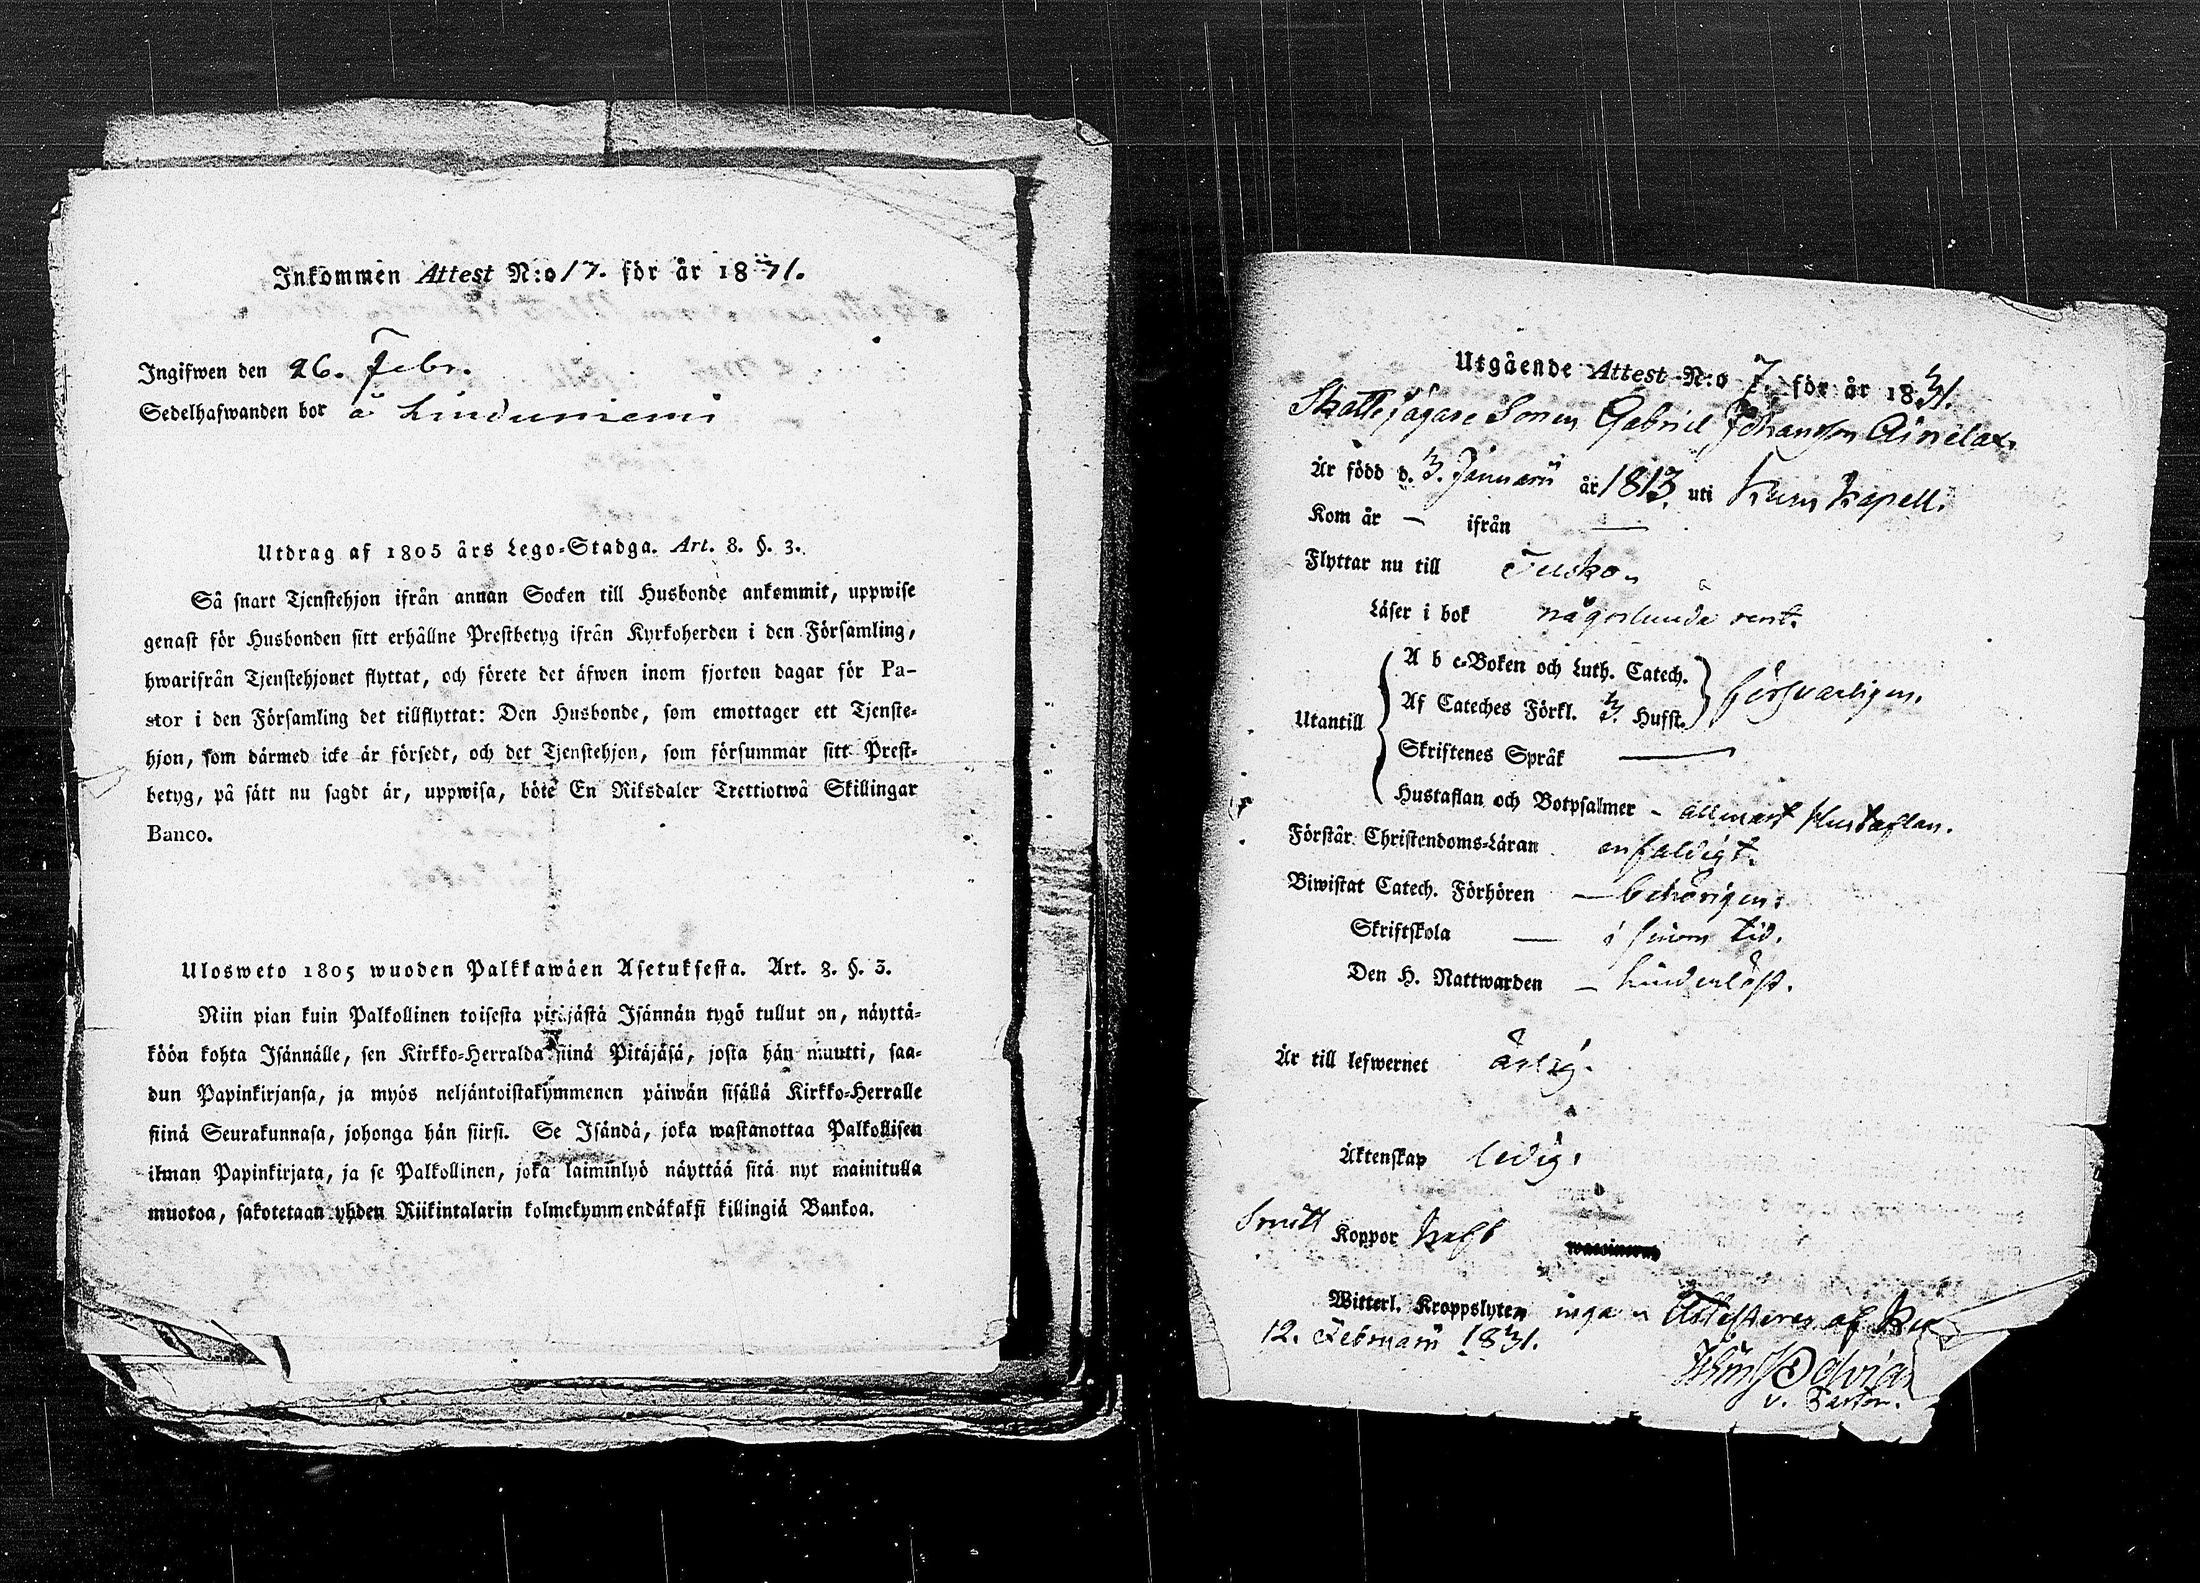 Inkommen Attest N:o 17. för år 1831.
Ingifwen den 26. Febr.
Sedelhafwanden bor å Linduniemi
Utdrag af 1805 års Lego-Stadga. Art. 8. §. 3.
Så snart Tjenstehjon ifrån annan Socken till Husbonde ankommit, uppwise
genast för Husbonden sitt erhållne Prestbetyg ifrån Kyrkoherden i den Församling,
hwarifrån Tjenstehjonet flyttat, och förete det äfwen inom fjorton dagar för Pa-
stor i den Församling det tillflyttat: Den Husbonde, som emottager ett Tjenste-
hjon, som därmed icke är försedt, och det Tjenstehjon, som försummar sitt Prest-
betyg, på sätt nu sagdt är, uppwisa, böte En Riksdaler Trettiotwå Skillingar
Banco.
Ulosweto 1805 wuoden Palkkawäen Asetuksesta. Art. 8. §. 3.
Niin pian kuin Palkollinen toisesta pitäjästä Isännän tygö tullut on, näyttä-
köön kohta Isännälle, sen Kirkko-Herralda siinä Pitäjäsä, josta hän muutti, saa-
dun Papinkirjansa, ja myös neljäntoistakymmenen päiwän sisällä Kirkko-Herralle
siinä Seurakunnasa, johonga hän siirsi. Se Isändä, joka wastanottaa Palkollisen
ilman Papinkirjata, ja se Palkollinen, joka laiminlyö näyttää sitä nyt mainitulla
muotoa, sakotetaan yhden Riikintalarin kolmekymmendäkaksi killingiä Bankoa.
Utgående Attest N:o 7. för år 1831.
Skattejägare Sonen Gabriel Johansson
Är född d. 3. Januarii år 1813 uti Kapell.
Kom år — ifrån —
Flyttar nu till
Läser i bok någorlunda rent.
A b c-Boken och Luth. Catech.
Af Cateches Förkl. 3. Hufst. försvarligen.
Utantill
Skriftenes Språk —
Hustaflan och Botpsalmer - allenast Hustaflan.
Förstår Christendoms-Läran enfaldigt.
Biwistat Catech. Förhören — behörigen.
Skriftskola — i sinom tid.
Den H. Nattwarden — hinderlöst.
Är till lefwernet ärlig.
Äktenskap ledig.
Koppor haft waccinerad
Witterl. Kroppslyten inga - Attesteras af
12. Februarii 1831.
v. Pastor.